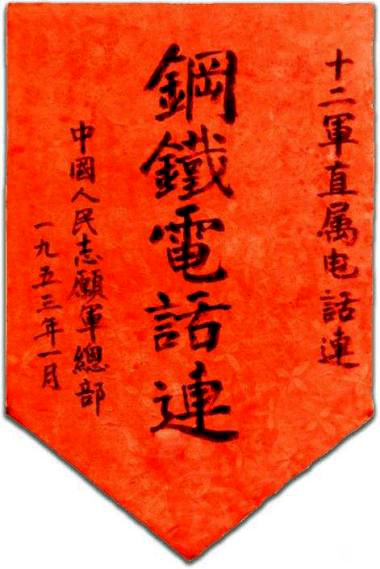 十二軍直属电話連
鋼鐵電話連
中國人民志願軍總部
一九五三年一月